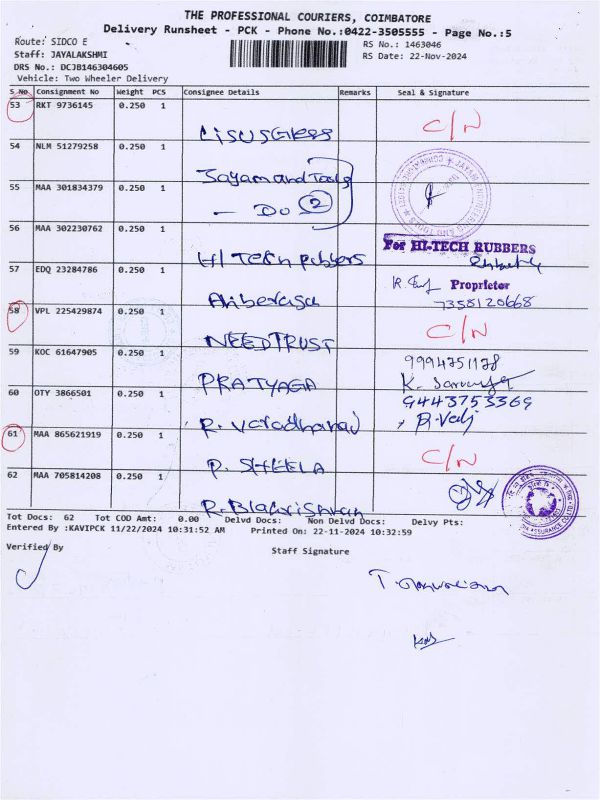 THE PROFESSIONAL COURIERS, COIMBATORE
Delivery Runsheet - PCK - Phone No.:0422-3505555 - Page No.:5
Route: SIDCO E
Staff: JAYALAKSHMI
DRS No.: DCJB146304605
Vehicle: Two Wheeler Delivery
RS No.: 1463046
RS Date: 22-Nov-2024
S No Consignment No Weight PCS Consignee Details Remarks Seal & Signature
53 RKT 9736145 0.250 1
C/N
54 NLM 51279258 0.250 1
Jayam and Tools
55 MAA 301834379 0.250 1
- Do 2
56 MAA 302230762 0.250 1
HI Tech Rubbers For HI-TECH RUBBERS
57 EDQ 23284786 0.250 1
Proprietor
7358120668
58 VPL 225429874 0.250 1
NEEDTRUST C/N
59 KOC 61647905 0.250 1
PRATYAGA 9994751178
60 OTY 3866501 0.250 1
R. Varadharad 9443753369
61 MAA 865621919 0.250 1
P. SHEELA C/N
62 MAA 705814208 0.250 1
Tot Docs: 62 Tot COD Amt: 0.00 Delvd Docs: Non Delvd Docs: Delvy Pts:
Entered By :KAVIPCK 11/22/2024 10:31:52 AM Printed On: 22-11-2024 10:32:59
Verified By Staff Signature